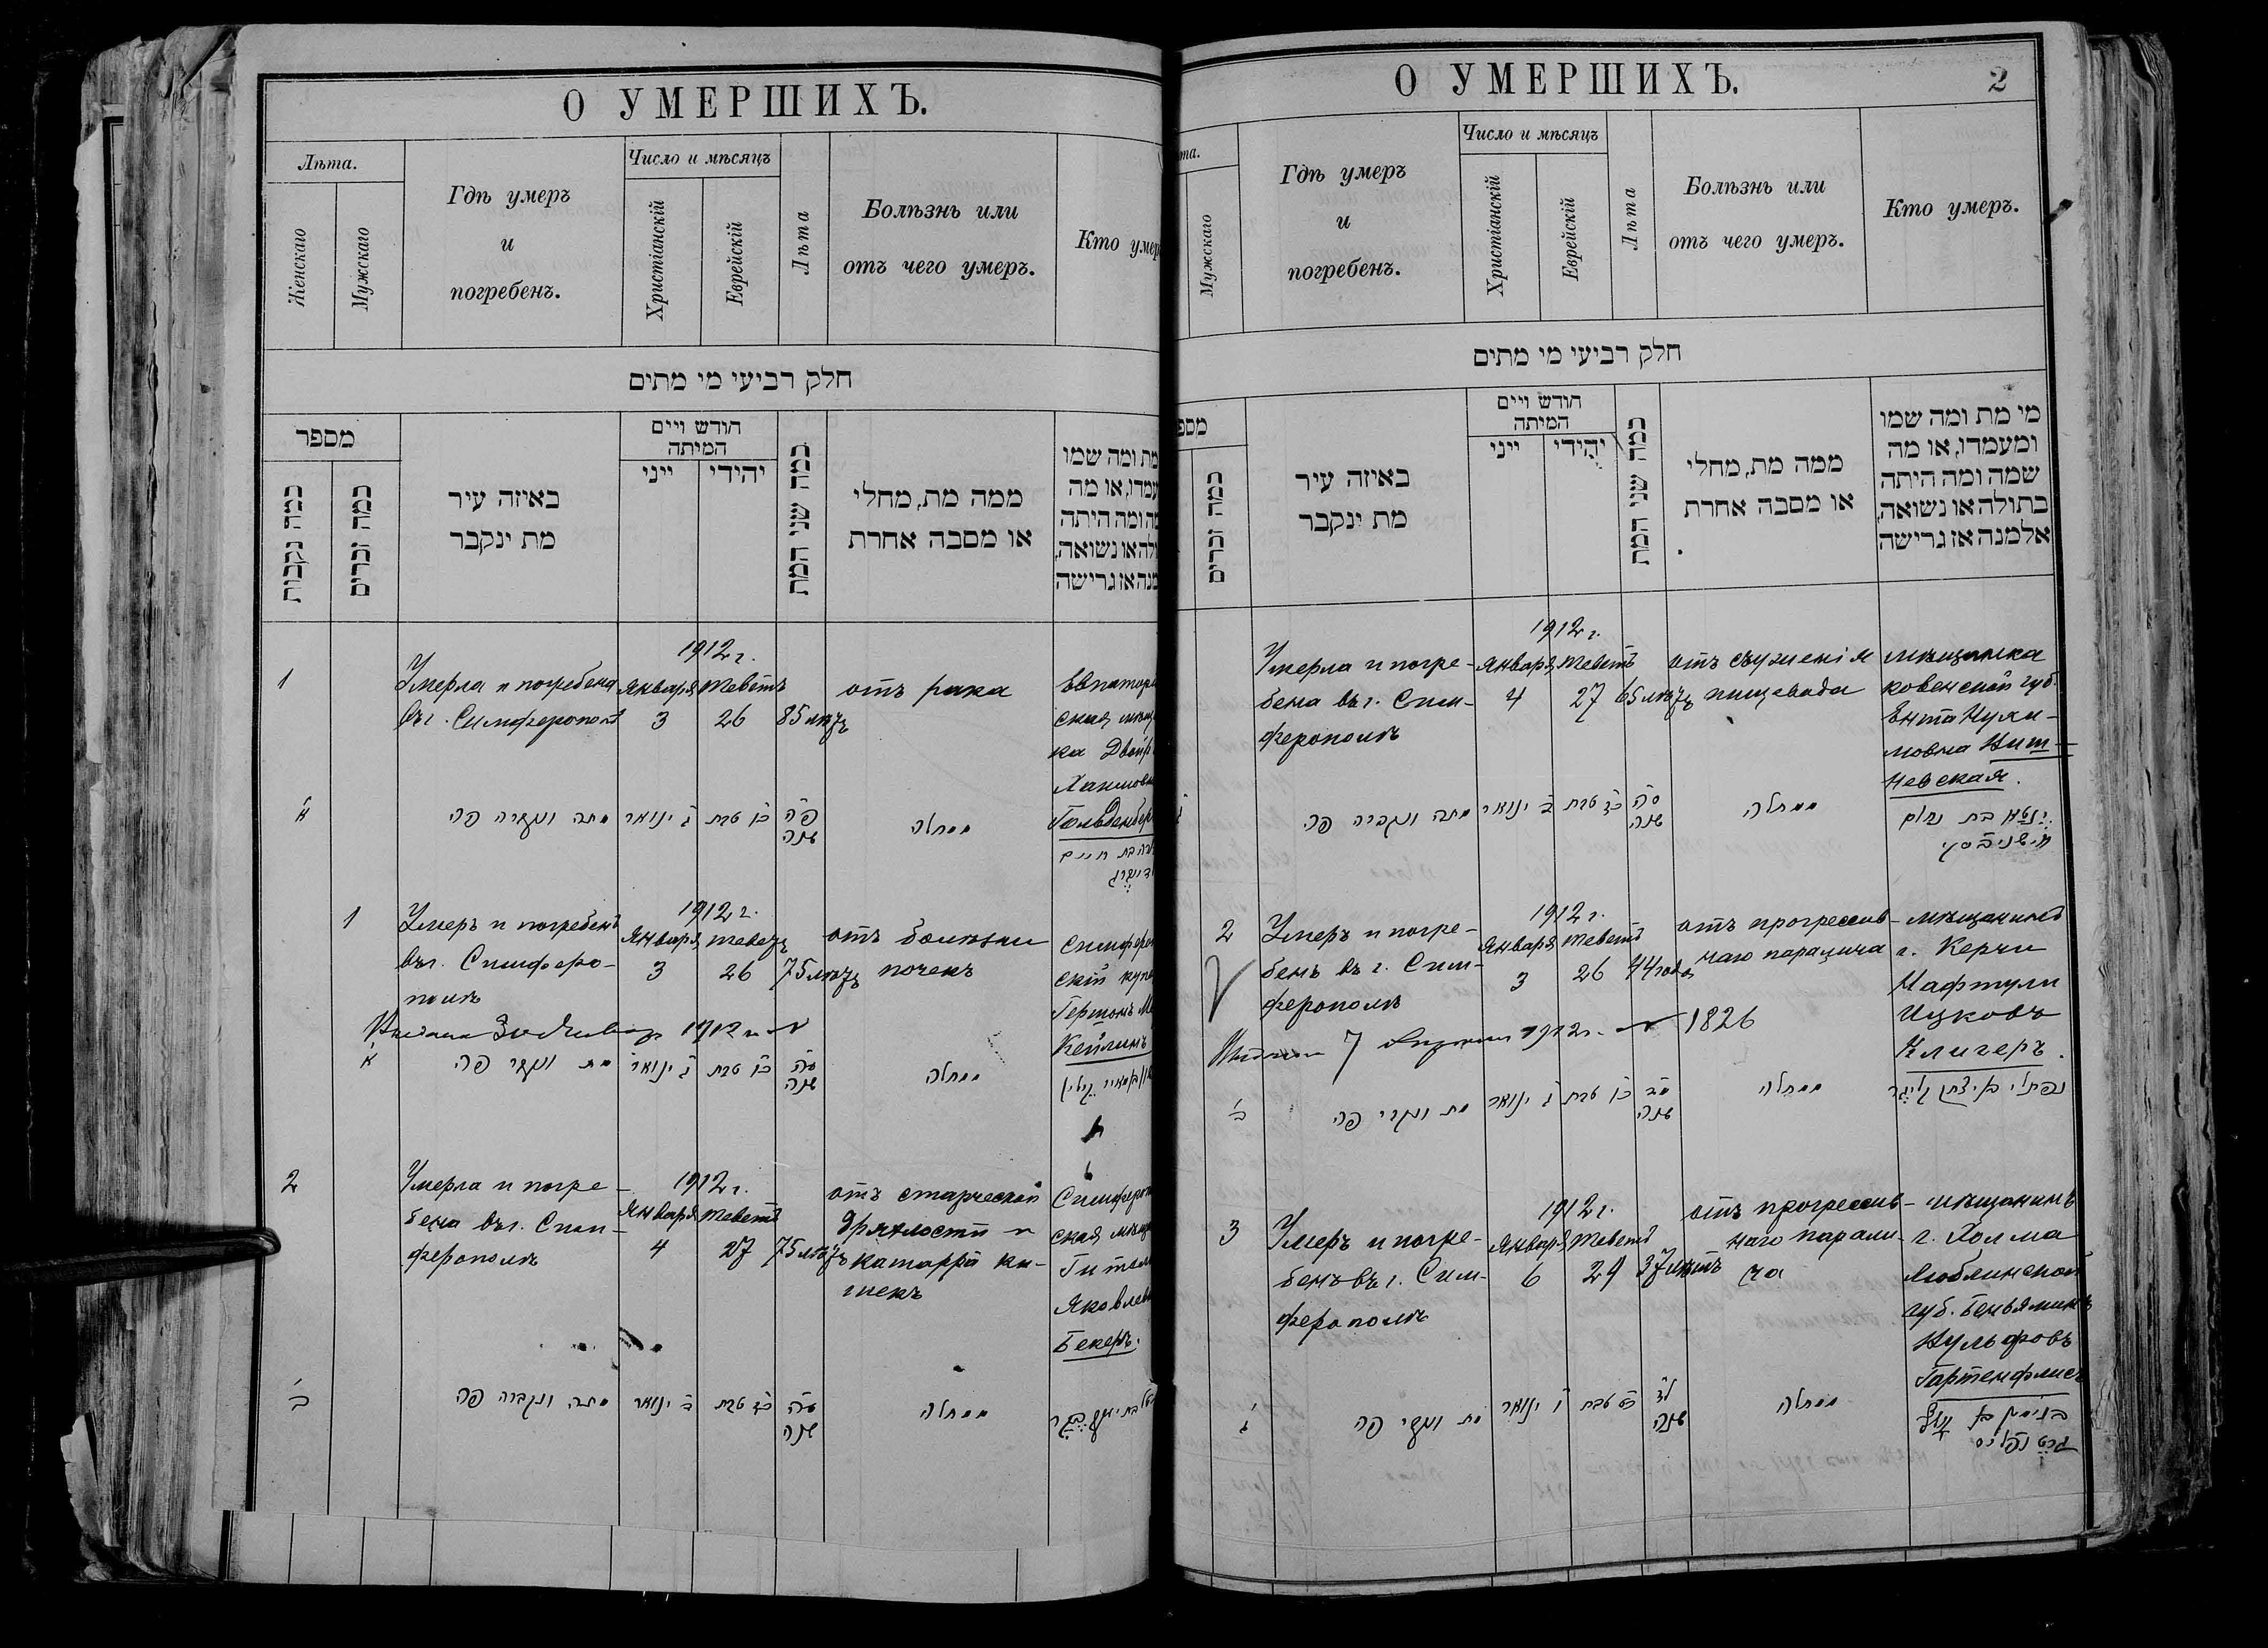 О УМЕРШИХЪ.
Лѣта.
Женскаго
Мужскаго
Гдѣ умеръ
и
погребенъ.
Число и мѣсяцъ
Христіанскій
Еврейскій
Лѣта
Болѣзнь или
отъ чего умеръ.
Кто умер
חלק רביעי מי מתים
מספר
כמה נקבות
כמה זכרים
באיזה עיר
מת ינקבר
חודש ויים
המיתה
ייני
יהידי
כמה שני המת
ממה מת, מחלי
או מסבה אחרת
מת ומה שמו
עמדו, או מה
מה ומה היתה
ולה או נשואה,
מנה אז גרישה
1
Умерла и погребена
въ г. Симферополѣ
1912 г.
Января Теветъ
3 26
85 лѣтъ
отъ рака
Евпатори
ская мѣщ
ка Двойр
Хаимовн
Гольденбер
א
מתה ונקברה פה
ג ינואר
כו טבת
פה
שנה
ממחלה
בת חיים
1
Умеръ и погребенъ
въ г. Симферо-
полѣ
1912 г.
Января Теветъ
3 26
75 лѣтъ
отъ болѣзни
почекъ
Симферо
скій купе
Гершонъ М
Кейлинъ
1912 г. №
א
מת ונקבר פה
ג ינואר
כו טבת
עה
שנה
ממחלה
2
Умерла и погре-
бена въ г. Сим-
ферополѣ
1912 г.
Января Теветъ
4 27
75 лѣтъ
отъ старческой
дряхлости и
катарра ки-
шекъ
Симферопо
ская мѣщ
Гители
Яковлев
Бекеръ.
ב
מתה ונקברה פה
ד ינואר
כז טבת
עה
שנה
ממחלה
О УМЕРШИХЪ.
2
та.
Мужскаго
Гдѣ умеръ
и
погребенъ.
Число и мѣсяцъ
Христіанскій
Еврейскій
Лѣта
Болѣзнь или
отъ чего умеръ.
Кто умеръ.
חלק רביעי מי מתים
מספ
כמה זכרים
באיזה עיר
מת ינקבר
חודש ויים
המיתה
ייני
יהידי
כמה שני המת
ממה מת, מחלי
או מסבה אחרת
מי מת ומה שמו
ומעמדו, או מה
שמה ומה היתה
בתולה או נשואה,
אלמנה אז גרישה
Умерла и погре-
бена въ г. Сим-
ферополѣ
1912 г.
Января Теветъ
4 27
65 лѣтъ
отъ съуженія
пищевода
мѣщанка
Ковенской губ.
Ента Нухи-
мовна Ниш-
невская.
ג
מתה ונקברה פה
ד ינואר
כז טבת
סה
שנה
ממחלה
יענטא בת נחום
2
Умеръ и погре-
бенъ въ г. Сим-
ферополѣ
1912 г.
Января Теветъ
3 26
44 года
отъ прогрессив-
наго паралича
мѣщанинъ
г. Керчи
Нафтули
Ицковъ
Клигеръ.
7 1912 г. № 1826
ב
מת ונקבר פה
ג ינואר
כו טבת
מד
שנה
ממחלה
נפתלי בן יצחק קליגער
3
Умеръ и погре-
бенъ въ г. Сим-
ферополѣ
1912 г.
Января Теветъ
6 29
37 лѣтъ
отъ прогрессив-
наго парали-
ча
мѣщанинъ
г. Холма
Люблинской
губ. Беньяминъ
Нульфовъ
Гартенфлисъ
ג
מת ונקבר פה
ו ינואר
כט טבת
לז
שנה
ממחלה